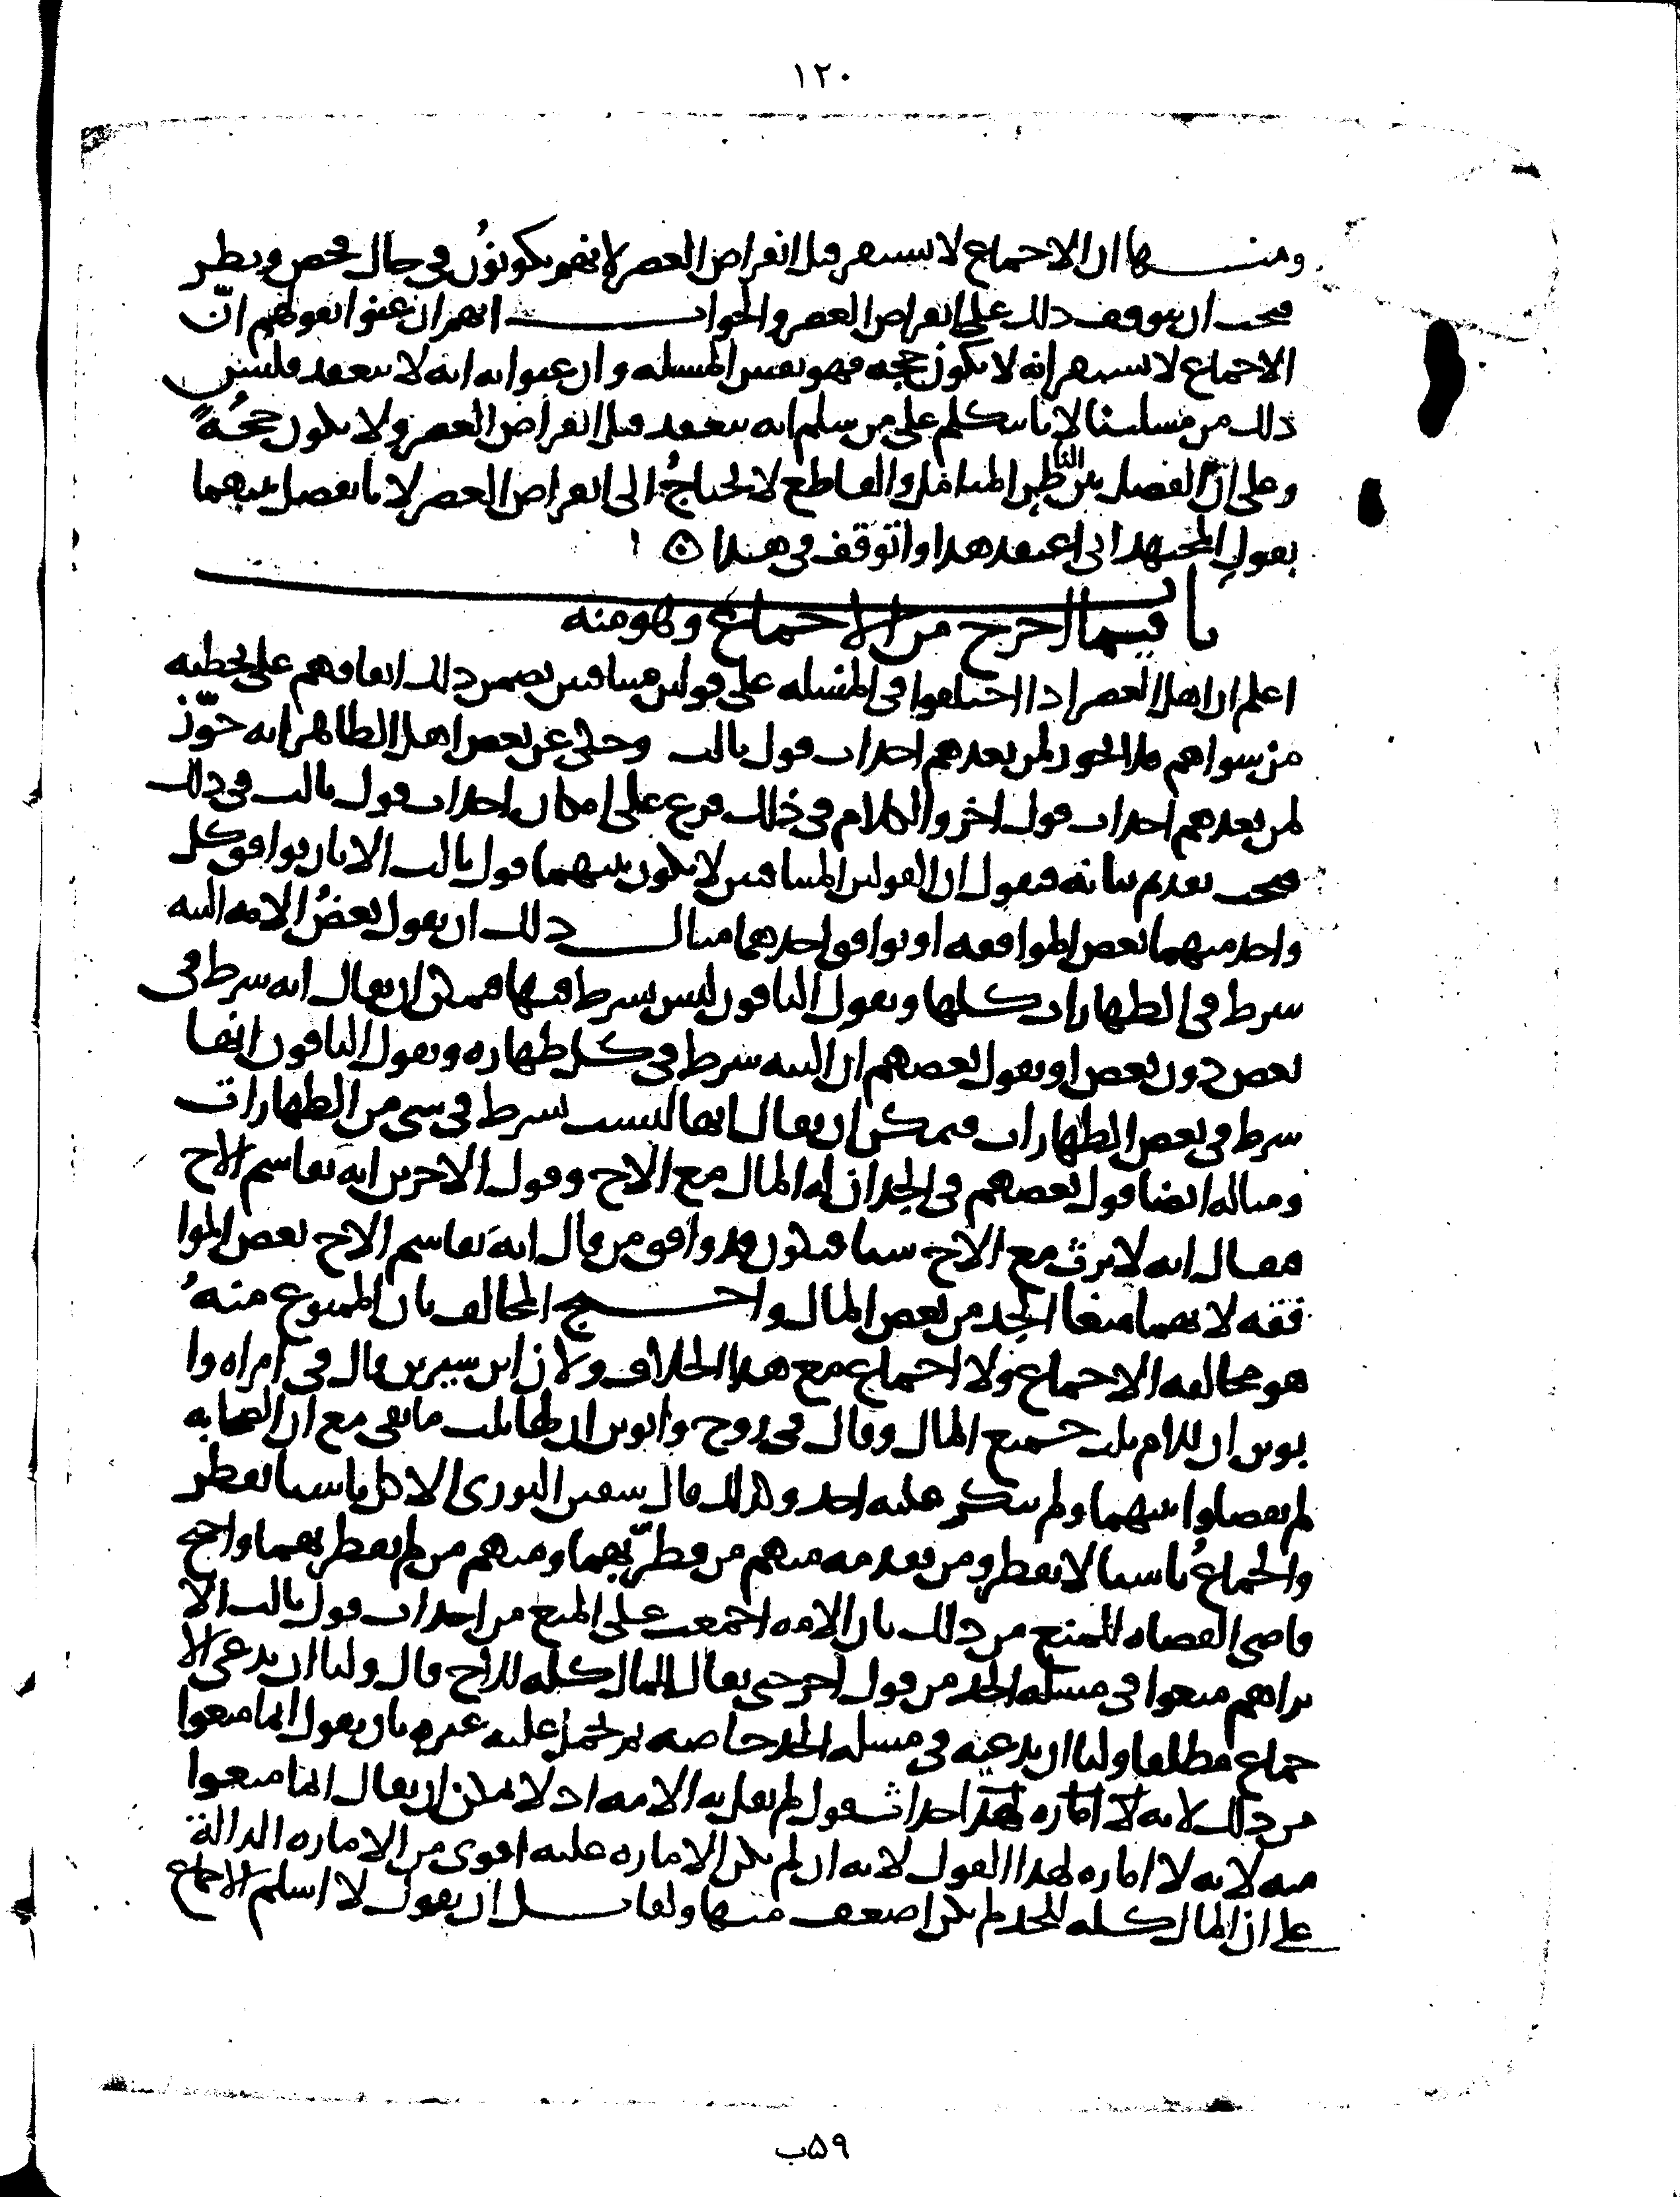 ١٢٠
ومنها ان الاجماع لا يستقر قبل انقراض العصر لانهم يكونون في حال فحص ونظر
فيجب ان يتوقف ذلك على انقراض العصر والجواب انهم ان عنوا بقولهم انّ
الاجماع لا يستقر انه لا يكون حجه فهو نفس المسله وان عنوا به انه لا ينعقد فليس
ذلك من مسلتنا لانا نتكلم على من سلم انه ينعقد قبل انقراض العصر ولا يكون حجُهً
وعلى انّ الفصل بين الناظر المتامل والقاطع لا يحتاجُ الى انقراض العصر لانا نفصل بينهما
بقول المجتهد اني اعتقد هذا واتوقف في هذا
باب فيما اخرج من الاجماع وهو منه
اعلم ان اهل العصر اذا اختلفوا في المسله على قولين متنافيين تضمن ذلك اتفاقهم على تخطيه
من سواهم فلا يجوز لمن بعدهم احداث قول ثالث وحكي عن بعض اهل الظاهر انه جوّز
لمن بعدهم احداث قول اخر والكلام في ذلك فرع على امكان احداث قول ثالث في ذلك
فيجب تقديم بيانه فنقول ان القولين المتنافيين لا يكون بينهما قول ثالث الا بان يوافق كل
واحد منهما بعض الموافقه او يوافق احدهما مثال ذلك ان يقول بعضُ الامه النيه
شرط في الطهارات كلها ويقول الباقون ليس بشرط فيها فيمكن ان يقال انه شرط في
بعض دون بعض او يقول بعضهم ان النيه شرط في كل طهاره ويقول الباقون انها
شرط في بعض الطهارات فيمكن ان يقال انها ليست بشرط في شي من الطهارات
ومثاله ايضا قول بعضهم في الجد ان له المال مع الاخ وقول الاخرين انه يقاسم الاخ
فقال انه لا يرث مع الاخ شيا فيكون قد وافق من قال انه يقاسم الاخ بعض الموا
فقه لانهما منعا الجد من بعض المال واحتج المخالف بان الممنوع منهُ
هو مخالفه الاجماع ولا اجماع مع هذا الخلاف ولان ابن سيرين قال في امراه وا
بوين ان للام ثلث جميع المال وقال في زوج وابوين ان لها ثلث ما بقي مع ان الصحابه
لم يفصلوا بينهما ولم ينكر عليه احد وكذلك قال سفين الثوري الاكل ناسيا يفطر
والجماعُ ناسيا لا يفطر ومن تقدمه منهم من فطّر بهما ومنهم من لم يفطر بهما واحتج
قاضي القضاه للمنع من ذلك بان الامه اجمعت على المنع من احداث قول ثالث الا
تراهم منعوا في مسله الجد من قول اخر حتى يقال المال كله للاخ قال ولنا ان ندعي الا
جماع مطلقا ولنا ان ندعيه في مسله الجد خاصه ثم نحمل عليه غيره بان يقول انما منعوا
من ذلك لانه لا اماره لهذا احداث قول لم تقل به الامه اذ لا يمكن ان يقال انما منعوا
منه لانه لا اماره لهذا القول لانه ان لم تكن الاماره عليه اقوى من الاماره الدالة
على ان المال كله للجد لم تكن اضعف منها ولقائل ان يقول لا اسلم الاجماع
٥٩ب